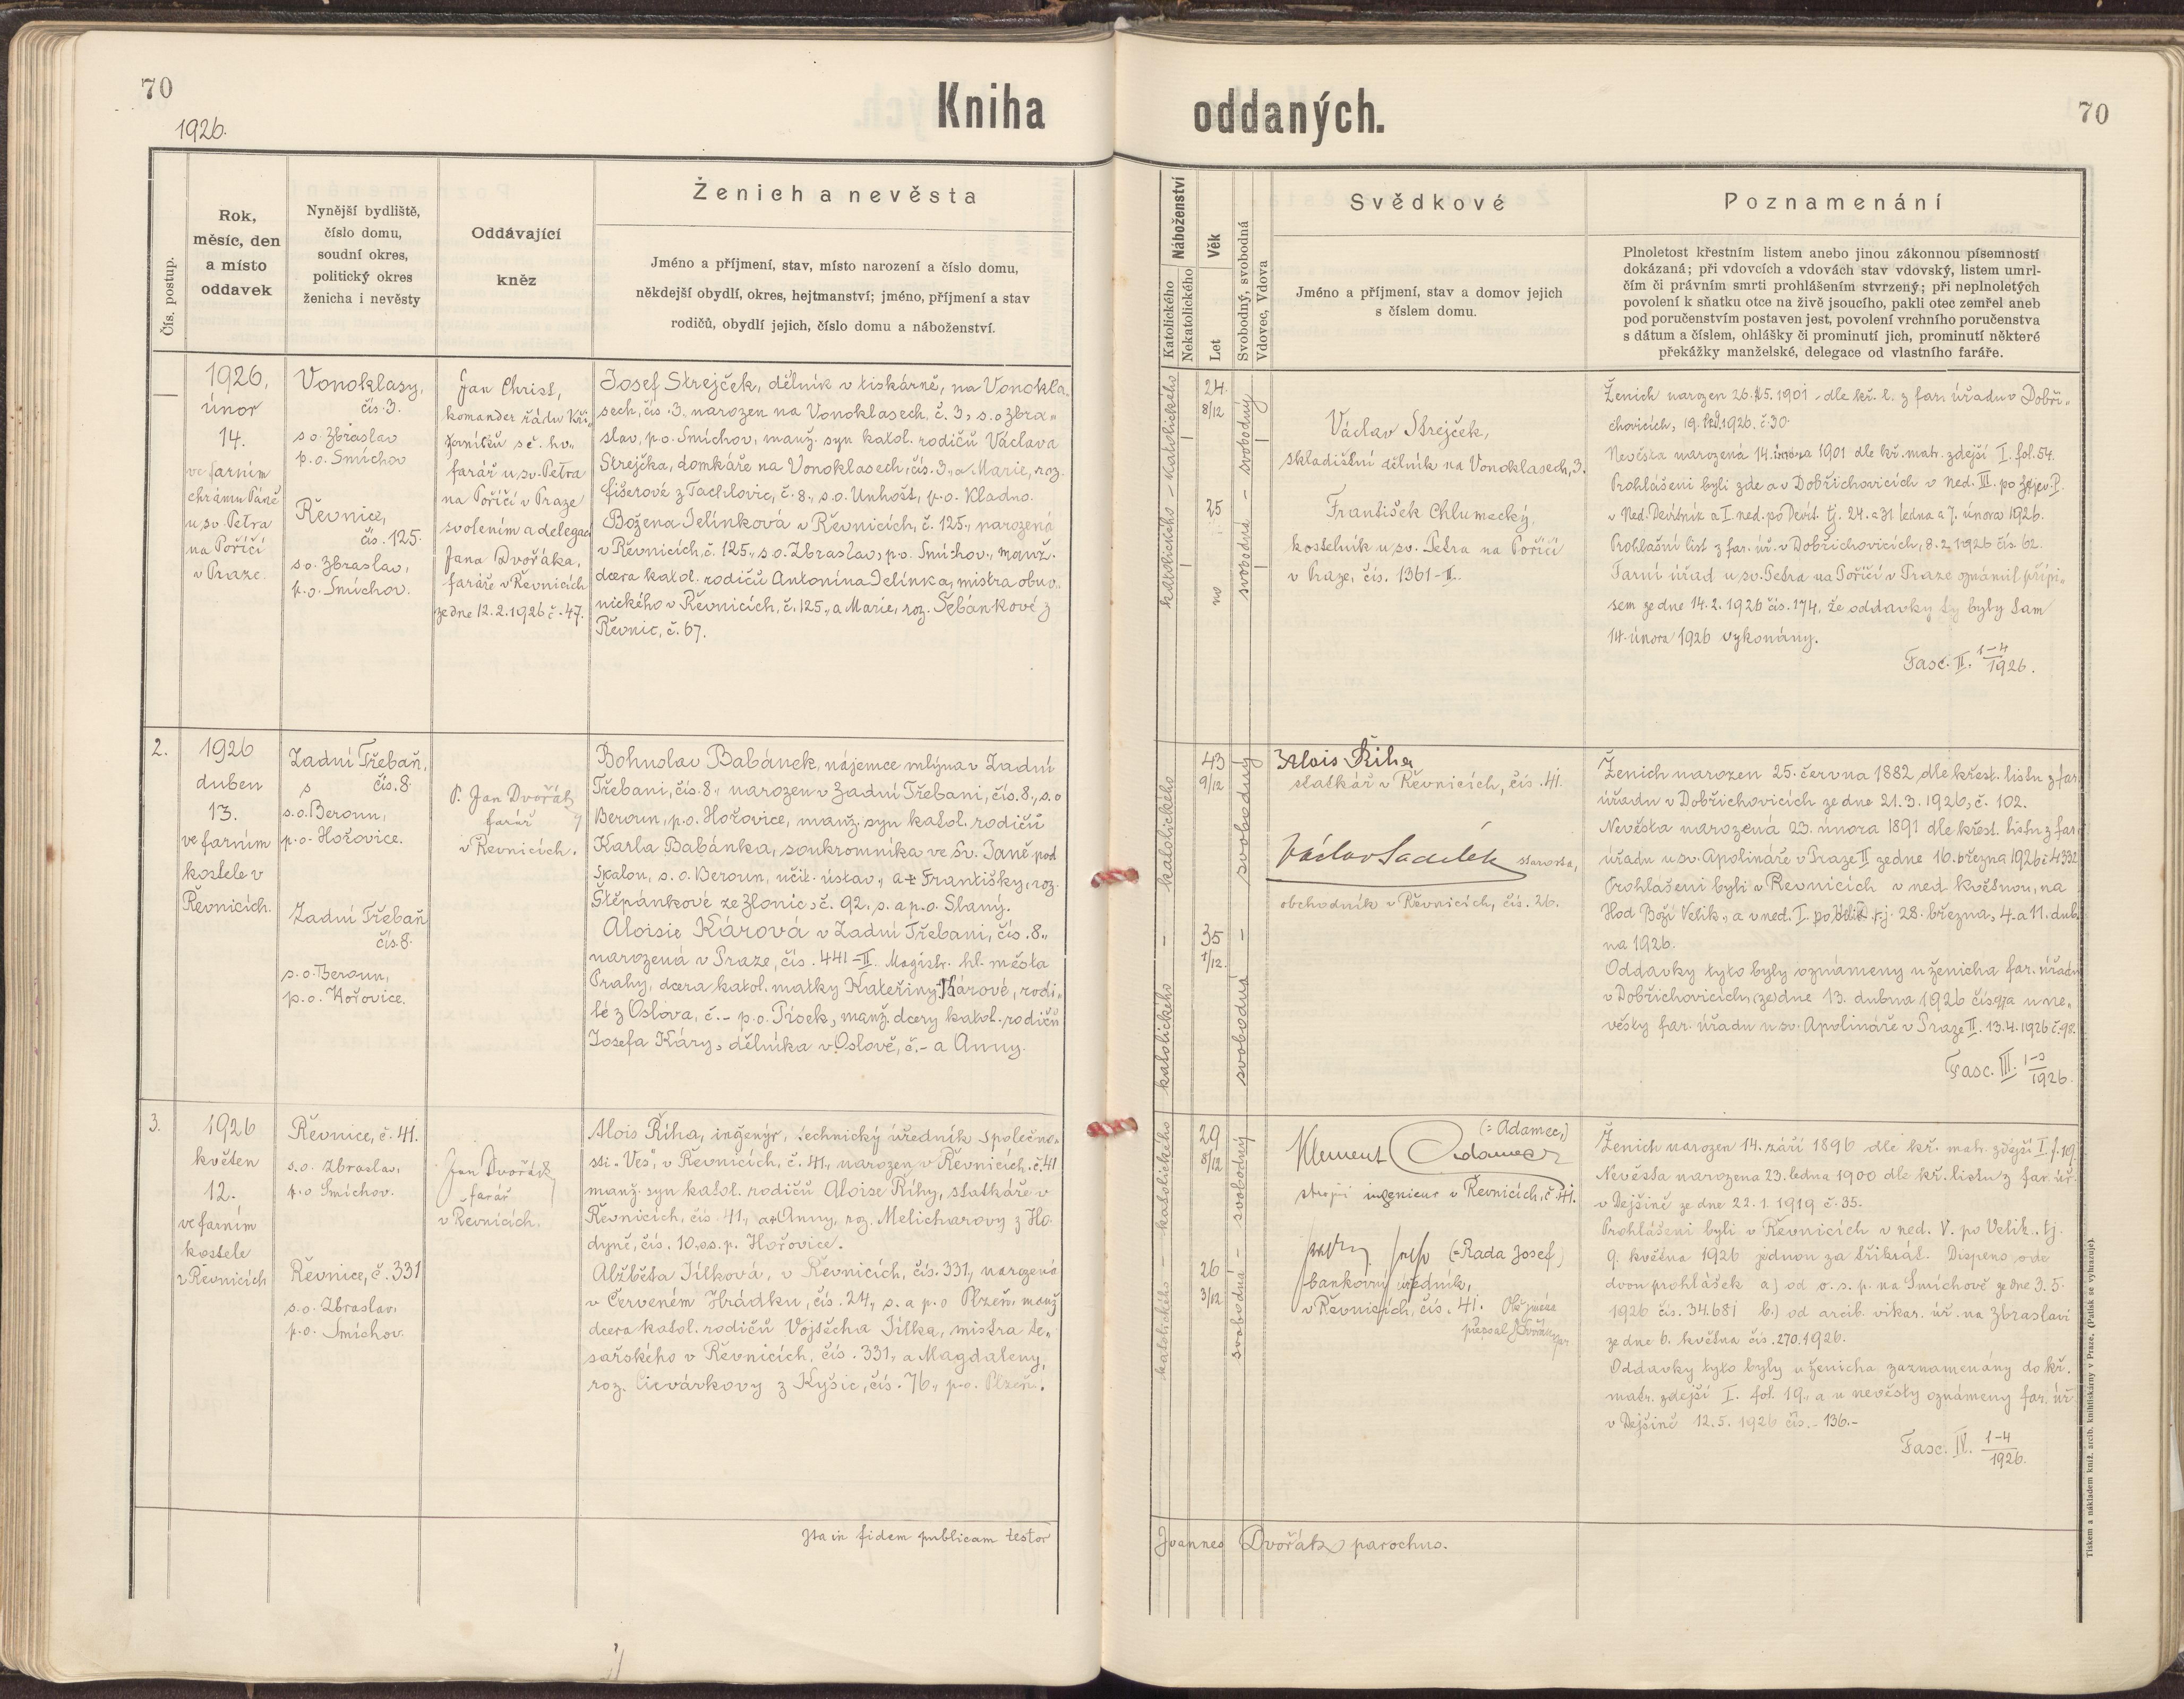 70
1926.
Kniha oddaných.
70
Čís. postup.
Rok,
měsíc, den
a místo
oddavek
Nynější bydliště,
číslo domu,
soudní okres,
politický okres
ženicha i nevěsty
Oddávající
kněz
Ženich a nevěsta
Jméno a příjmení, stav, místo narození a číslo domu,
někdejší obydlí, okres, hejtmanství; jméno, příjmení a stav
rodičů, obydlí jejich, číslo domu a náboženství.
Náboženství
Katolického
Nekatolického
Věk
Let
Svobodný, svobodná
Vdovec, Vdova
Svědkové
Jméno a příjmení, stav a domov jejich
s číslem domu.
Poznamenání
Plnoletost křestním listem anebo jinou zákonnou písemností
dokázaná; při vdovcích a vdovách stav vdovský, listem umrl-
čím či právním smrti prohlášením stvrzený; při neplnoletých
povolení k sňatku otce na živě jsoucího, pakli otec zemřel aneb
pod poručenstvím postaven jest, povolení vrchního poručenstva
s dátum a číslem, ohlášky či prominutí jich, prominutí některé
překážky manželské, delegace od vlastního faráře.
—
1926,
únor
14.
ve farním
chrámu Páně
u sv. Petra
na Poříčí
v Praze.
Vonoklasy,
čís. 3.
s.o. Zbraslav
p.o. Smíchov
Řevnice,
čís. 125.
s.o. Zbraslav,
p.o. Smíchov.
Jan Christ,
komander řádu Kři-
žovníků sč. hv.
farář u sv. Petra
na Poříčí v Praze
svolením a delegací
Jana Dvořáka,
faráře v Řevnicích
ze dne 12.2.1926 č. 47.
Josef Strejček, dělník v tiskárně, na Vonokla-
sech, čís. 3, narozen na Vonoklasech, č. 3, s.o Zbra-
slav, p.o. Smíchov, manž. syn katol. rodičů Václava
Strejčka, domkáře na Vonoklasech, čís. 3., a Marie, roz.
Fišerové z Tachlovic, č. 8., s.o. Unhošt, p.o. Kladno.
Božena Jelínková v Řevnicích, č. 125., narozená
v Řevnicích, č. 125., s.o. Zbraslav, p.o. Smíchov., manž.
dcera katol. rodičů Antonína Jelínka, mistra obuv-
nického v Řevnicích, č. 125., a Marie, roz. Šebánkové z
Řevnic, č. 67.
katolického - katolického
24
8/12
25
no
svobodná - svobodný
Václav Strejček,
skladištní dělník na Vonoklasech, 3.
František Chlumecký,
kostelník u sv. Petra na Poříčí
v Praze, čís. 1361-II.
Ženich narozen 26. 5. 1901 - dle kř. l. z far. úřadu v Dobři-
chovicích, 19. led. 1926. č. 30.
Nevěsta narozená 14. února 1901 dle kř. matr. zdejší I. fol. 54.
Prohlášeni byli zde a v Dobřichovicích v ned. III. po Zjev. P.
v Ned. Devítník a I. ned. po Devít. tj. 24. a 31 ledna a 7. února 1926.
Prohlašní list z far. úř. v Dobřichovicích, 8.2.1926 čís. 62.
Farní úřad u sv. Petra na Poříčí v Praze oznámil přípi-
sem ze dne 14.2.1926 čís. 174, že oddavky ty byly tam
14. února 1926 vykonány.
Fasc. II. 1-4/1926.
2.
1926
duben
13.
ve farním
kostele v
Řevnicích.
Zadní Třebaň,
čís. 8.
s.o. Beroun,
p.o. Hořovice.
Zadní Třebaň
čís. 8.
s.o. Beroun,
p.o. Hořovice.
P. Jan Dvořák
farář
v Řevnicích.
Bohuslav Babánek, nájemce mlýna v Zadní
Třebani, čís. 8., narozen v Zadní Třebani, čís. 8., s.o
Beroun, p.o. Hořovice, manž. syn katol. rodičů
Karla Babánka, soukromníka ve Sv. Janě pod
Skalou, s.o. Beroun, učit. ústav., a + Františky, roz.
Štěpánkové ze Zlonic, č. 92., s. a p.o. Slaný.
Aloisie Kárová v Zadní Třebani, čís. 8.,
narozená v Praze, čís. 441-II. Magistr. hl. města
Prahy, dcera katol. matky Kateřiny Kárové, rodi-
lé z Oslova, č.- p.o. Písek, manž. dcery katol. rodičů
Josefa Káry, dělníka v Oslově, č.- a Anny.
katolického - katolického
43
9/12
35
1/12.
svobodná - svobodný
Alois Říha
statkář v Řevnicích, čís. 41.
Václav Sadílek starosta,
obchodník v Řevnicích, čís. 26.
Ženich narozen 25. června 1882, dle křest. listu z far.
úřadu v Dobřichovicích ze dne 21.3.1926, č. 102.
Nevěsta narozená 23. února 1891 dle křest. listu z far.
úřadu u sv. Apolináře v Praze II ze dne 16. března 1926 č. 4332
Prohlášeni byli v Řevnicích v ned. květnou, na
Hod Boží Velik., a v ned. I. po Velik. t.j. 28. března, 4. a 11. dub.
na 1926.
Oddavky tyto byly oznámeny u ženicha far. úřadu
v Dobřichovicích, (ze) dne 13. dubna 1926 čís. a u ne-
věsty far. úřadu u sv. Apolináře v Praze II. 13.4.1926 č. 98.
Fasc. III. 1-3/1926.
3.
1926
květen
12.
ve farním
kostele
v Řevnicích
Řevnice, č. 41.
s.o. Zbraslav,
p.o Smíchov.
Řevnice, č. 331
s.o. Zbraslav,
p.o. Smíchov.
Jan Dvořák
farář
v Řevnicích.
Alois Říha, inženýr, technický úředník společno-
sti "Ves", v Řevnicích, č. 41., narozen v Řevnicích, č. 41
manž. syn katol. rodičů Aloise Říhy, statkáře v
Řevnicích, čís. 41., a + Anny, roz. Melicharovy z Ho-
dyně, čís. 10., o.s.p. Hořovice.
Alžběta Jílková, v Řevnicích, čís. 331., narozená
v Červeném Hrádku, čís. 24., s. a p.o Plzeň, manž
dcera katol. rodičů Vojtěcha Jílka, mistra te-
sařského v Řevnicích, čís. 331., a Magdaleny,
roz. Cievárkovy z Kyšic, čís. 76., p.o. Plzeň.
katolického - katolického
29
8/12
26
3/12
svobodná - svobodný
(: Adamec,)
Klement Adamec
strojní ingenieur v Řevnicích, č. 41.
(-Rada Josef)
bankovní úředník,
v Řevnicích, čís. 41. Obě jména
přepsal J Dvořák far
Ženich narozen 14. září 1896 dle kř. matr. zdejší I. f. 19.
Nevěsta narozena 23. ledna 1900 dle kř. listu z far. úř.
v Dejšině ze dne 22.1.1919 č. 35.
Prohlášeni byli v Řevnicích v ned. V. po Velik. tj.
9. května 1926 jednou za třikrát. Dispens ode
dvou prohlášek a) od o.s.p. na Smíchově ze dne 3.5.
1926 čís. 34.681 b.) od arcib. vikar. úř. na Zbraslavi
ze dne 6. května čís. 270.1926.
Oddavky tyto byly u ženicha zaznamenány do kř.
matr. zdejší I. fol. 19., a u nevěsty oznámeny far. úř
v Dejšině 12.5.1926 čís. - 136.-
Fasc. IV. 1-4/1926.
Ita in fidem publicam testor
Joannes Dvořák parochus.
Tiskem a nákladem kníž. arcib. knihtiskárny v Praze. (Patisk se vyhrazuje)